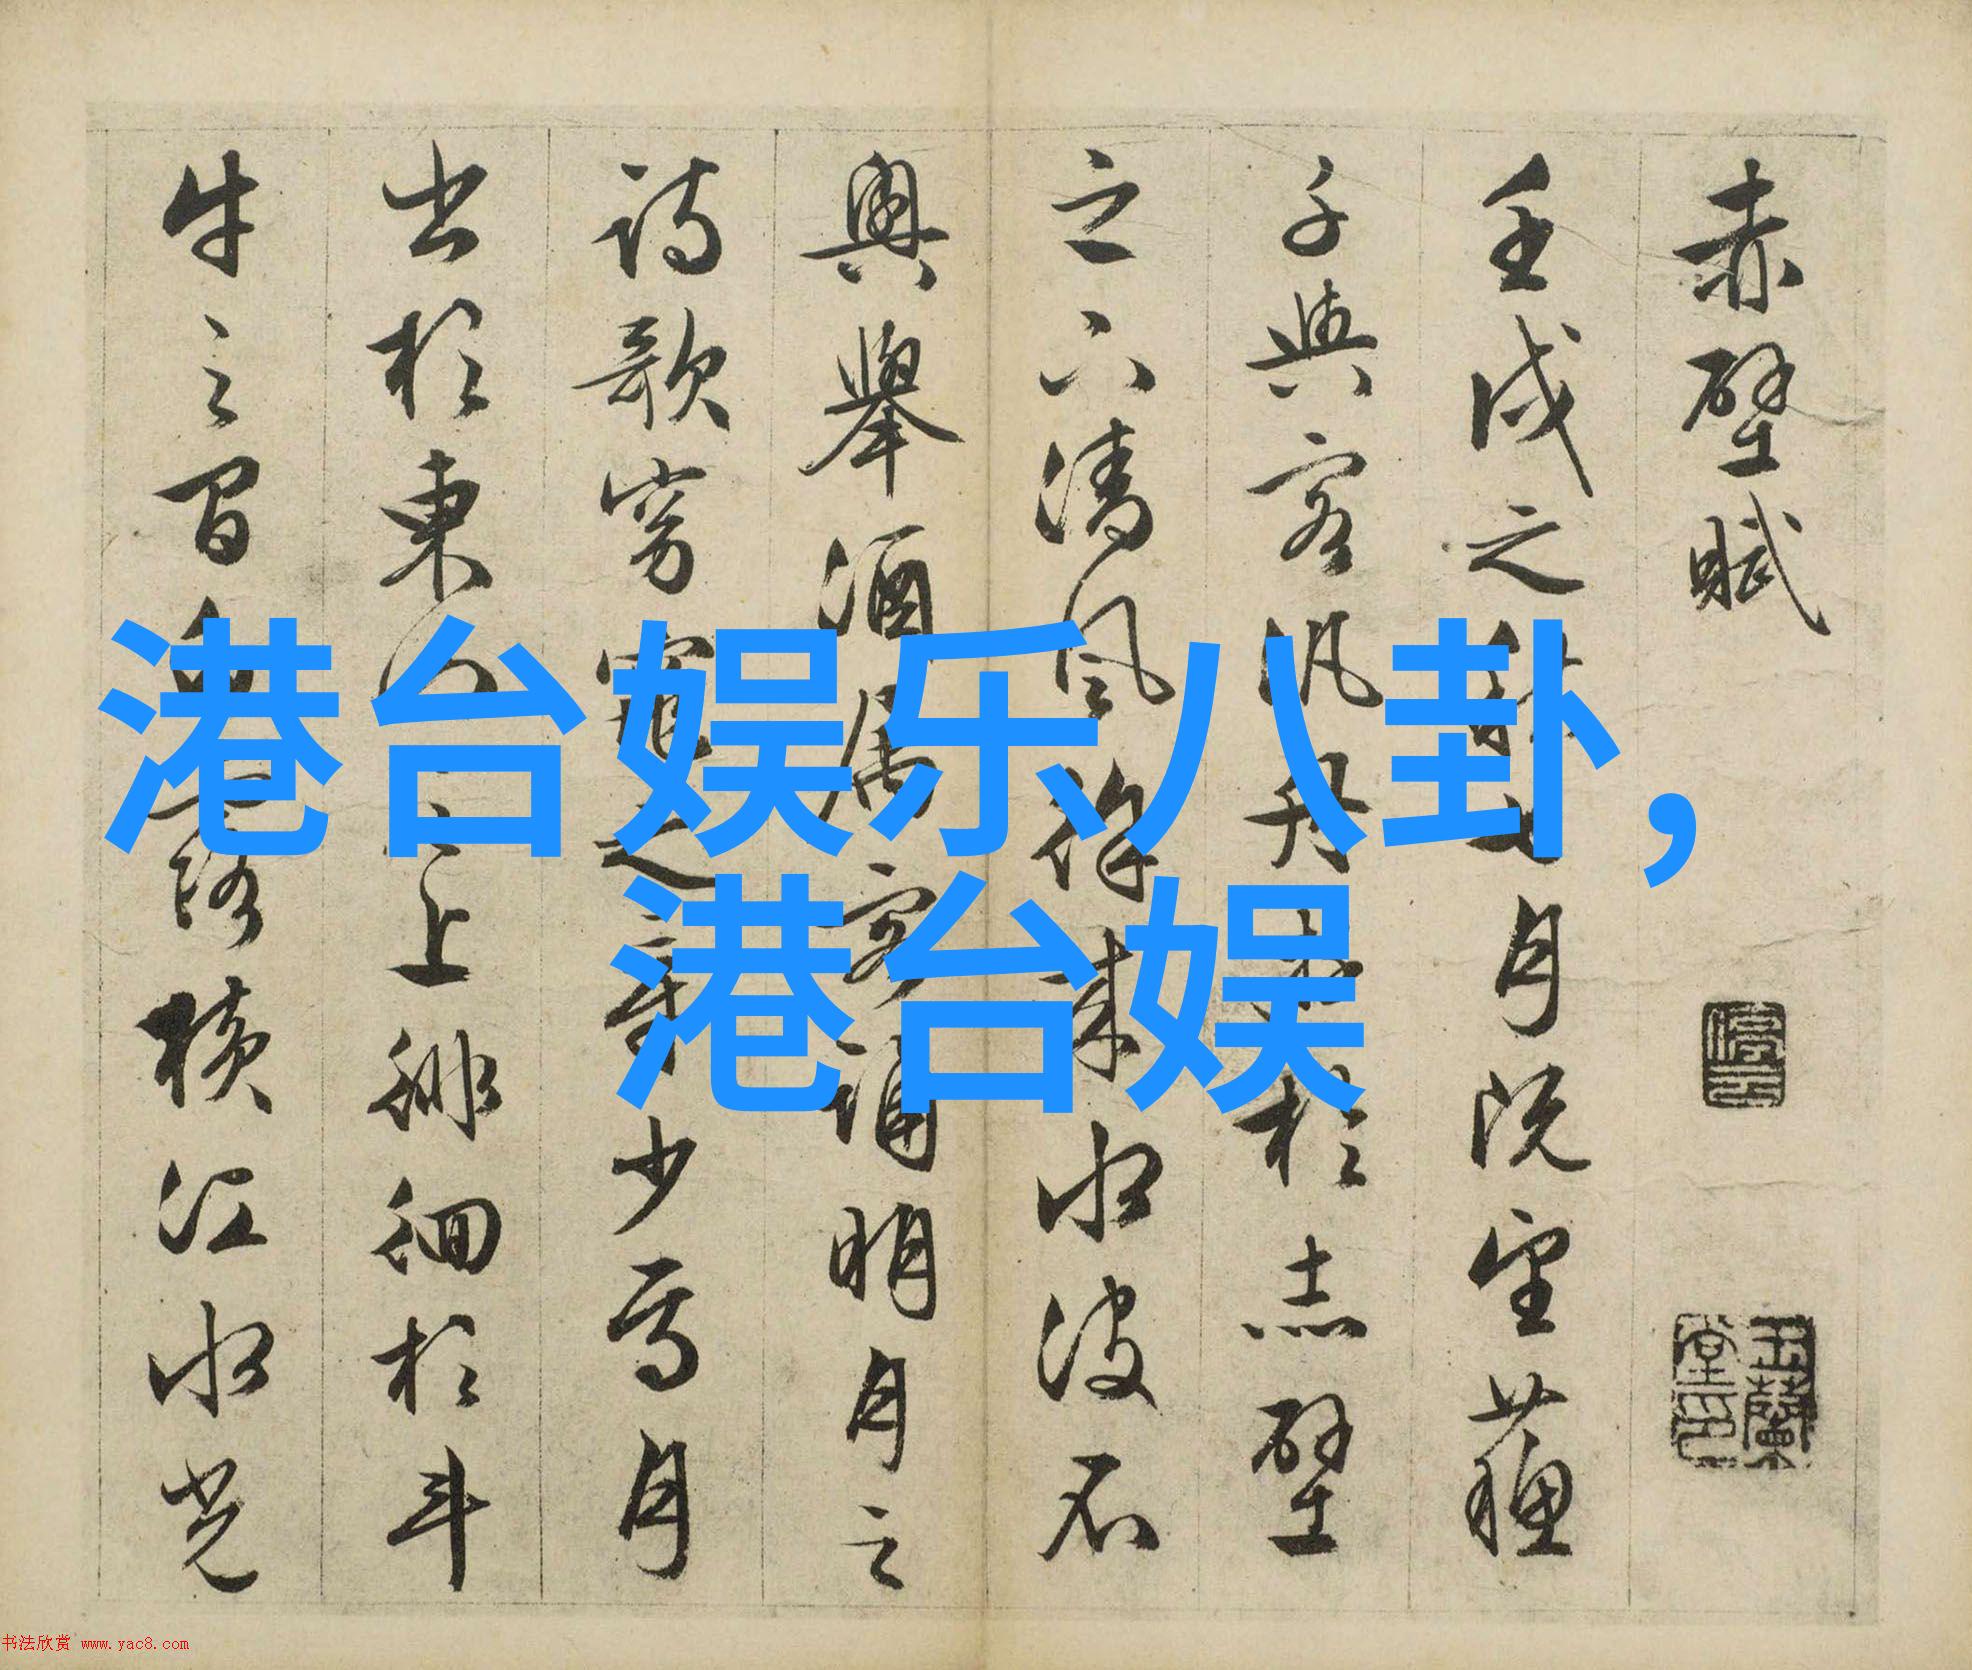 赤壁賦
壬戌之秋七月既望蘇
子與客汎舟遊於赤壁
之下清風徐来水波不
興舉酒屬客誦明月之
詩歌窈窕之章少焉月
出於東山之上徘徊於斗
牛之間白露橫江水光
停雲
玉蘭堂印
港台娱乐八卦，
港台娱
书法欣赏 www.yac8.com